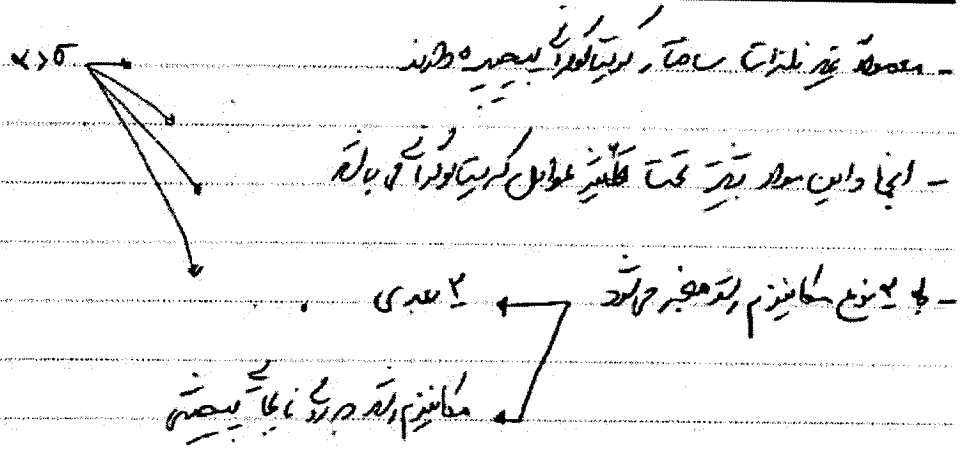 - معمولاً غیر فلزات ساختار کریستالوگرافی پیچیده دارند
α > σ
- انجماد این مواد بیشتر تحت تأثیر عوامل کریستالوگرافی می باشد
- به ۲ نوع مکانیزم رشد منجر می شود
۲ بعدی
مکانیزم رشد بر روی پیچشی